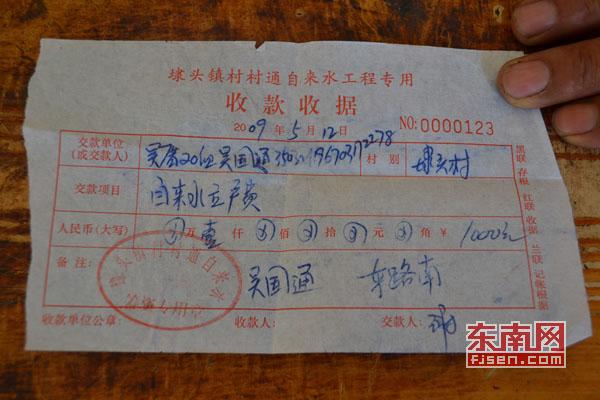 埭头镇村村通自来水工程专用
收款收据
2009年5月12日 NO:0000123
交款单位
(或交款人) 吴国通 村别 埭头村
交款项目 自来水立户费
人民币(大写) ⊗万壹仟⊗佰⊗拾⊗元⊗角¥1000元
备注: 吴国通 东路南
埭头镇村村通自来水
专用章
收款单位公章: 收款人: 交款人:
黑联 存根 红联 收据 兰联 记帐根据
东南网
fjsen.com